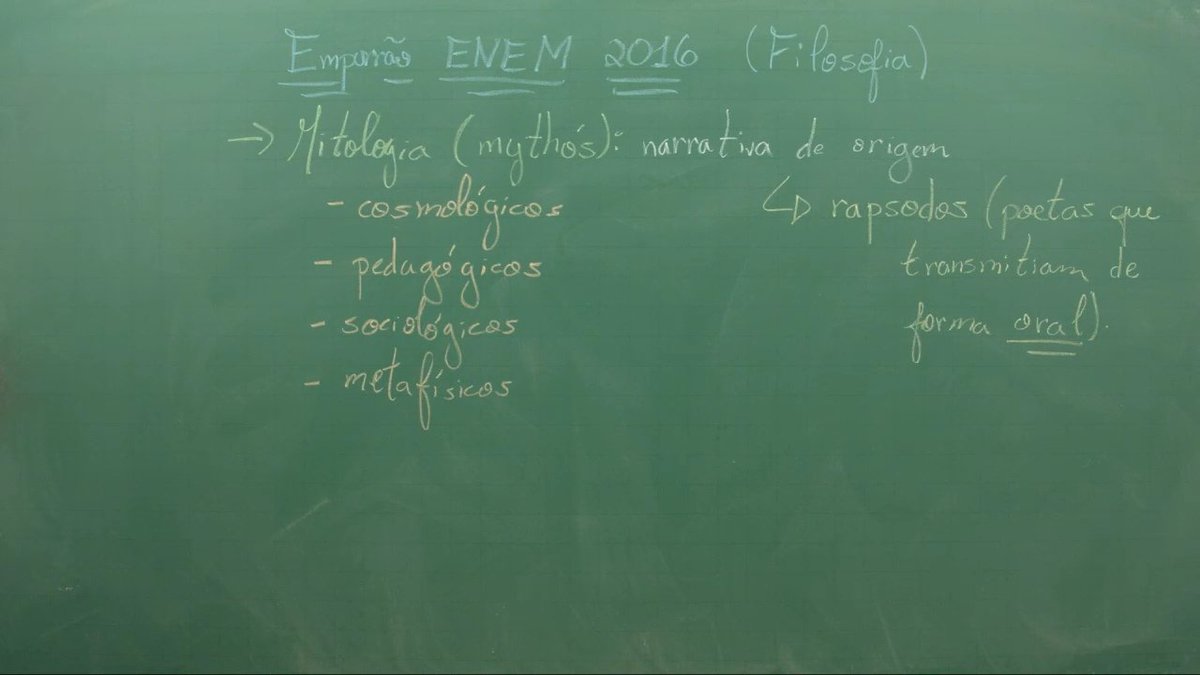 Empurrão ENEM 2016 (Filosofia)
→ Mitologia (mythós): narrativa de origem
- cosmológicos
- pedagógicos
- sociológicos
- metafísicos
↳ rapsodos (poetas que
transmitiam de
forma oral).